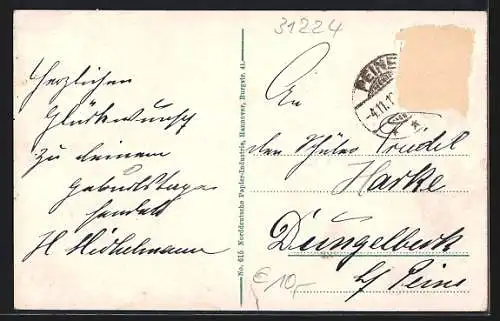 31224
Herzlichen
Glückwunsch
zu deinem
Geburtstage
sendet
H
No. 615 Norddeutsche Papier-Industrie, Hannover, Burgstr. 41.
PEINE
-4.11.1
An
den Schüler Trudel
Harke
Dungelbeck
b/ Peine
€ 10,-